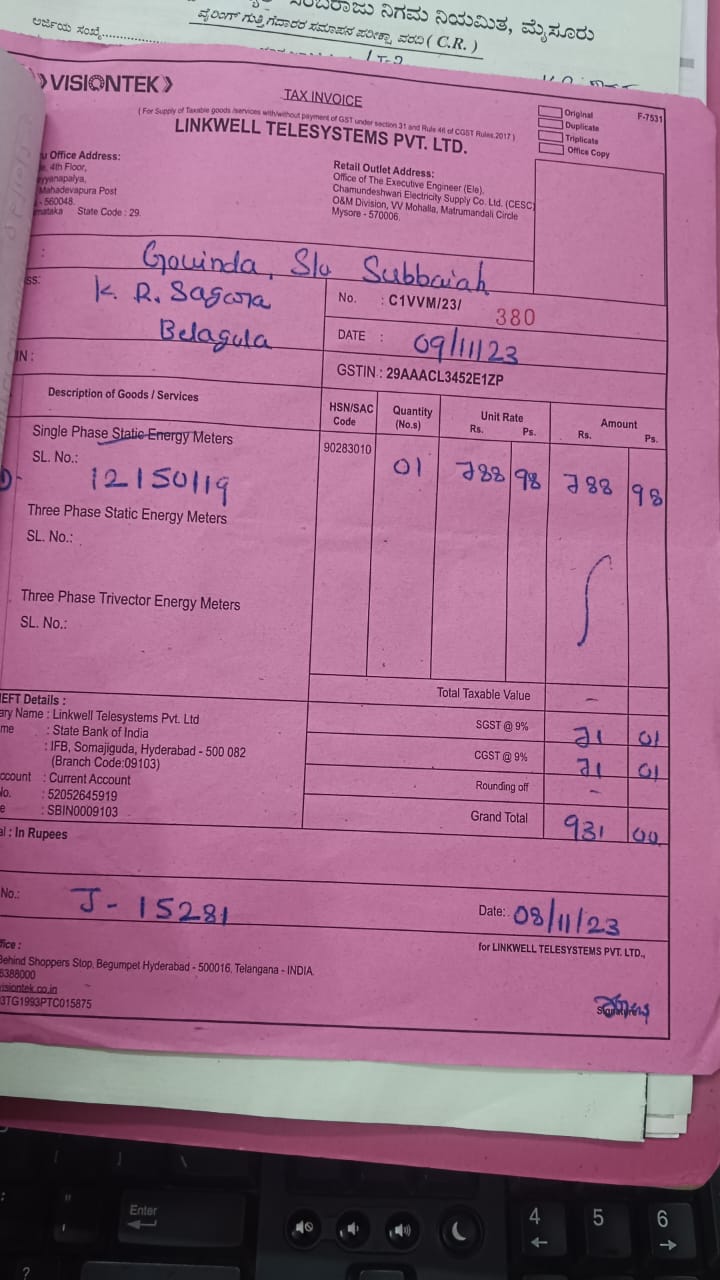 ನಿಗಮ ನಿಯಮಿತ, ಮೈಸೂರು
ವೈರಿಂಗ್ ಗುತ್ತಿಗೆದಾರರ ಸಮಾಪನ ಪರೀಕ್ಷಾ ವರದಿ ( C.R. )
ಅರ್ಜಿಯ ಸಂಖ್ಯೆ
VISIONTEK
TAX INVOICE
( For Supply of Taxable goods /services with/without payment of GST under section 31 and Rule 46 of CGST Rules,2017 )
LINKWELL TELESYSTEMS PVT. LTD.
Original
Duplicate
Triplicate
Office Copy
F-7531
Office Address:
4th Floor,
Mahadevapura Post
- 560048.
State Code : 29.
Retail Outlet Address:
Office of The Executive Engineer (Ele).
Chamundeshwari Electricity Supply Co. Ltd. (CESC)
O&M Division, VV Mohalla, Matrumandali Circle
Mysore - 570006.
: Govinda, S/o Subbaiah
K. R. Sagara
Belagula
No. : C1VVM/23/ 380
DATE : 09/11/23
IN :
GSTIN : 29AAACL3452E1ZP
Description of Goods / Services
HSN/SAC Code
Quantity (No.s)
Unit Rate Rs. Ps.
Amount Rs. Ps.
Single Phase Static Energy Meters
90283010 01 788 98 788 98
SL. No.:
12150119
Three Phase Static Energy Meters
SL. No.:
Three Phase Trivector Energy Meters
SL. No.:
Total Taxable Value -
SGST @ 9% 71 01
CGST @ 9% 71 01
Rounding off -
Grand Total 931 00
EFT Details :
ary Name : Linkwell Telesystems Pvt. Ltd
me : State Bank of India
: IFB, Somajiguda, Hyderabad - 500 082
(Branch Code:09103)
ccount : Current Account
No. : 52052645919
e : SBIN0009103
al : In Rupees
No.: J - 15281
Date: 08/11/23
fice :
Behind Shoppers Stop, Begumpet Hyderabad - 500016, Telangana - INDIA.
6388000
visiontek.co.in
3TG1993PTC015875
for LINKWELL TELESYSTEMS PVT. LTD.,
Enter
4
5
6
?